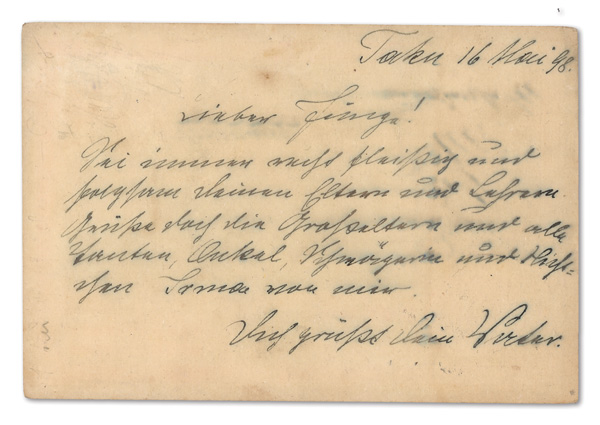 Taku 16 Mai 98.
Lieber Junge!
Sei immer recht fleißig und
folgsam Deinen Eltern und Lehrern.
Grüße doch die Großeltern und alle
Tanten, Onkel, Schwägerin und
chen Irma von mir.
Dich grüßt Dein Vater.